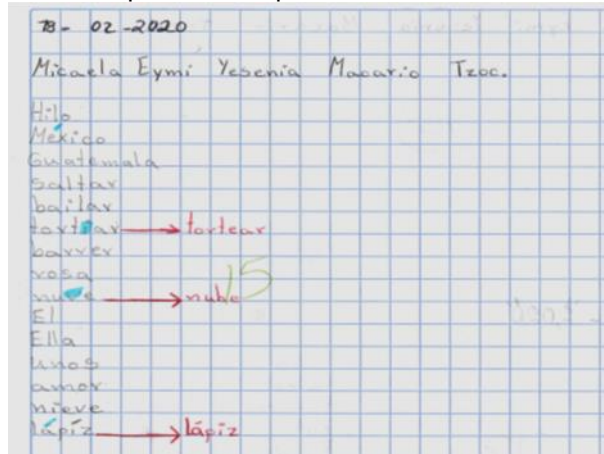 18- 02-2020
Micaela Eymi Yesenia Macario Tzoc.
Hilo
México
Guatemala
saltar
bailar
tortiar → tortear
barver
rosa
nuve → nube
El
Ella
unos
amor
nieve
lápíz → lápiz
15